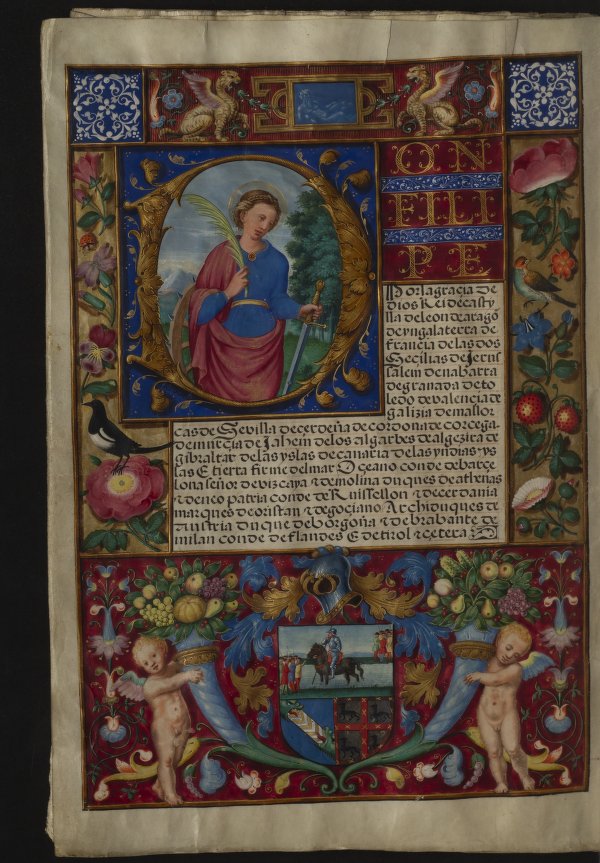 D
ON
FILI
PE
Por la gracia de
dios Rei de casty
lla de leon de aragõ
de yngalaterra de
francia de las dos
Secilias de jerus
salem de nabarra
de granada de to
ledo de valencia de
galizia de mallor
cas de Sevilla de cerdeña de cordona de corcega
de murcia de Jahem de los algarbes de algezira de
gibraltar de las yslas de canaria de las yndias ys
las E tierra firme del mar Oceano conde de barçe
lona señor de vizcaya & de molina duques de athenas
& de neopatria conde de Ruissellon & de cerdania
marques de oristan & de gociano Archiduques de
Austria duque de borgoña & de brabante &
milan conde de flandes E de tirol & cetera